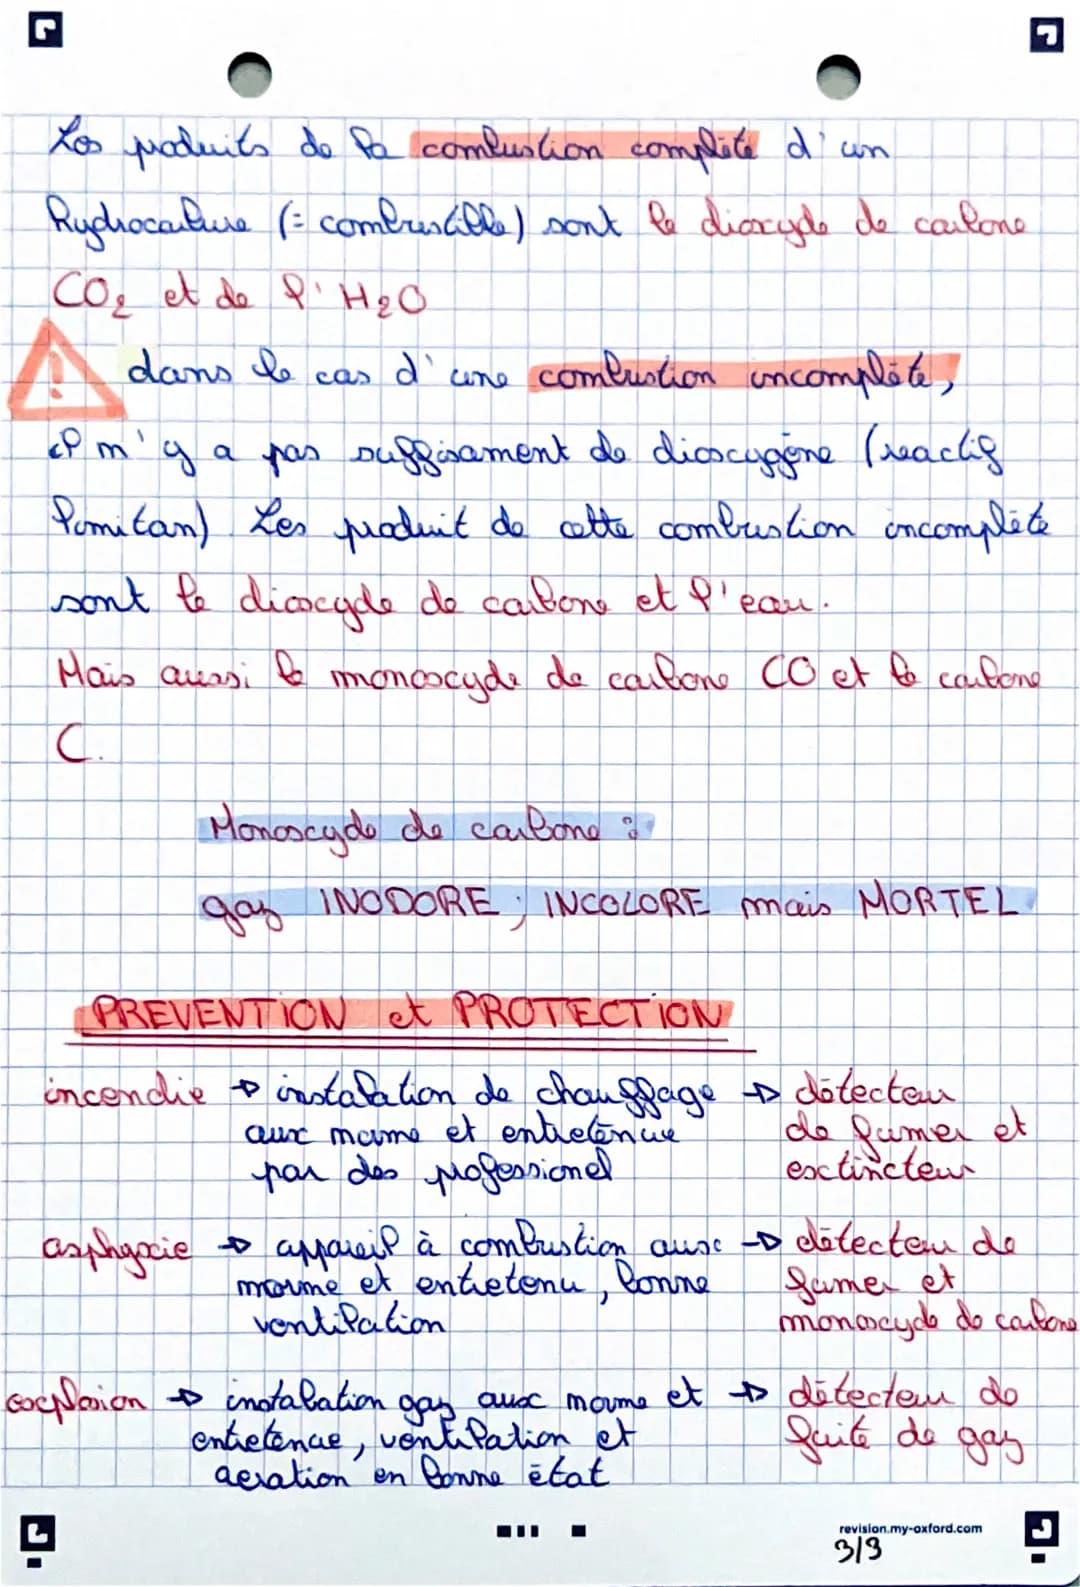 Les produits de la combustion complète d'un
hydrocarbure (= combustible) sont le dioxyde de carbone
CO2 et de l'H2O
! dans le cas d'une combustion incomplète,
il n'y a pas suffisament de dioxygène (reactif
limitan). Les produit de cette combustion incomplète
sont le dioxyde de carbone et l'eau.
Mais aussi le monoxyde de carbone CO et le carbone
C.
Monoxyde de carbone :
gaz INODORE ; INCOLORE mais MORTEL
PREVENTION et PROTECTION
incendie → instalation de chauffage → détecteur
aux norme et entretenue de fumer et
par des professionel extincteur
asphyxie → appareil à combustion aux → détecteur de
norme et entretenu, bonne fumer et
ventilation monoxyde de carbone
explosion → instalation gaz aux norme et → détecteur de
entretenue, ventilation et fuite de gaz
aeration en bonne état
revision.my-oxford.com
3/3